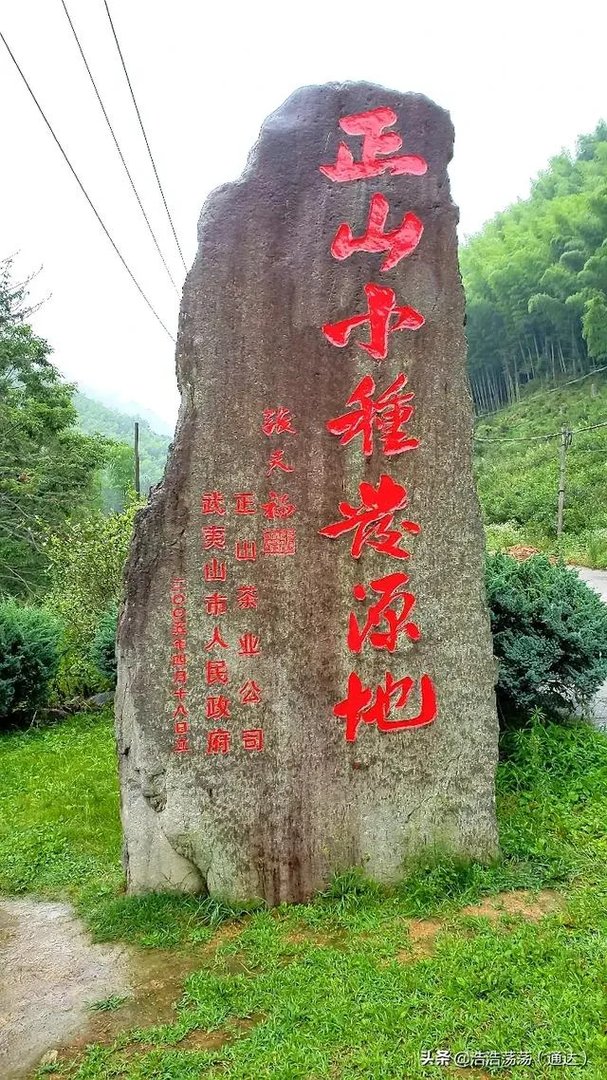 正山小種發源地
張天福
正山茶业公司
武夷山市人民政府
二〇〇五年四月十八日立
头条 @浩浩荡荡（通达）